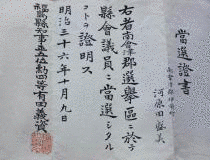 當選證書
河原田盛美
右者南會津郡選擧區ニ於テ
縣會議員ニ當選シタル
コトヲ證明ス
明治三十六年十月九日
福島縣知事正五位勲四等有田義資